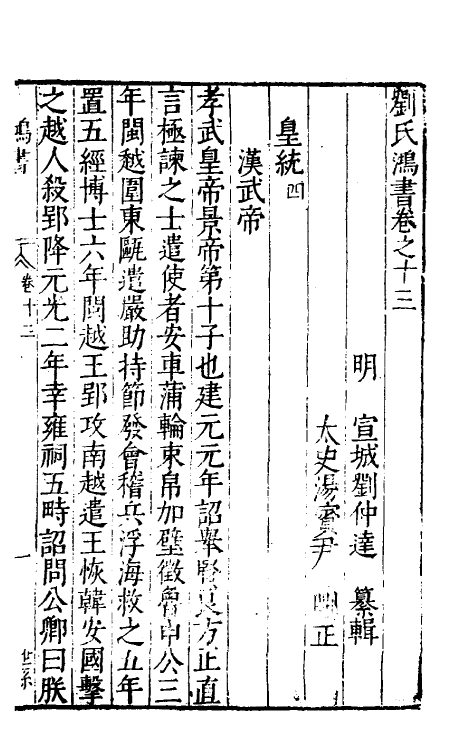 劉氏鴻書卷之十三
明 宣城劉仲達 纂輯
太史湯賓尹 正
皇統四
漢武帝
孝武皇帝景帝第十子也建元元年詔舉賢良方正直
言極諫之士遣使者安車蒲輪束帛加璧徵魯申公三
年閩越圍東甌遣嚴助持節發會稽兵浮海救之五年
置五經博士六年閩越王郢攻南越遣王恢韓安國擊
之越人殺郢降元光二年幸雍祠五畤詔問公卿曰朕
鴻書 卷十三 一